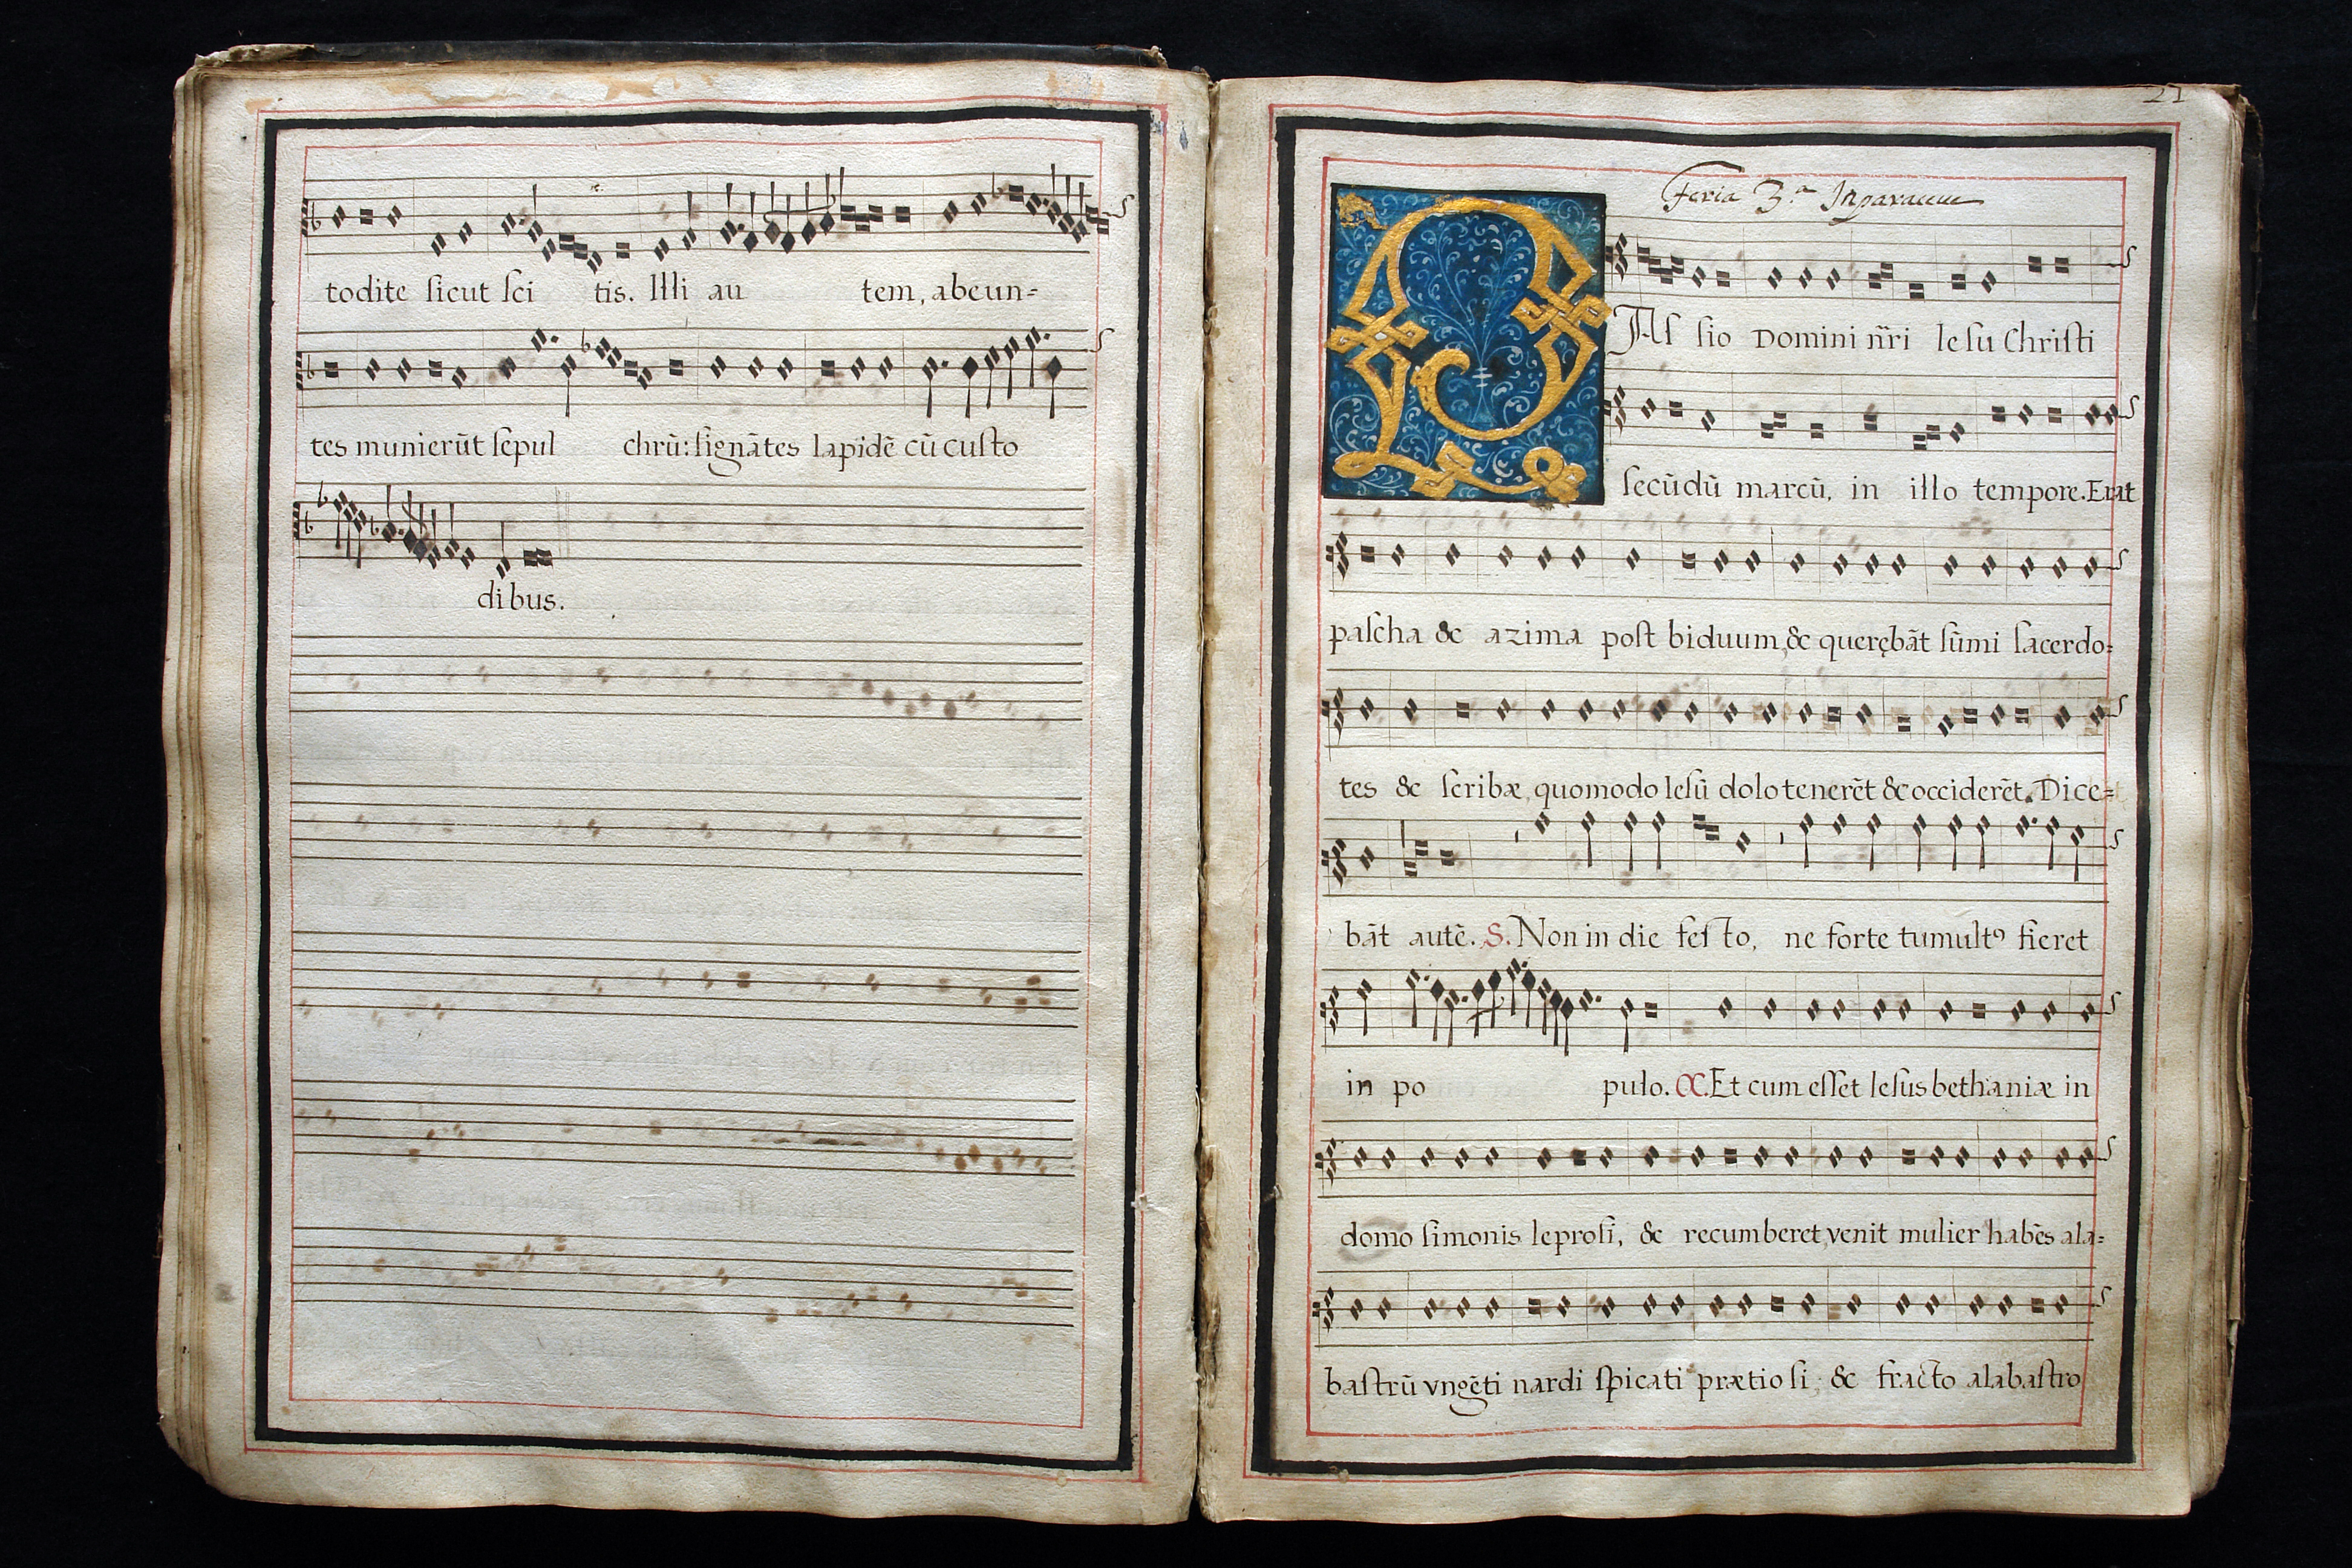 todite sicut sci tis. Illi au tem, abeun=
tes munierūt sepul chrū: signātes lapidē cū custo
dibus.
21
Feria 3.ª
PAs sio Domini nr̄i Iesu Christi
secūdū marcū, in illo tempore. Erat
pascha & azima post biduum, & querębāt sūmi sacerdo=
tes & scribæ, quomodo Iesū dolo tenerēt & occiderēt. Dice=
bāt autē. S. Non in die festo, ne forte tumultꝰ fieret
in po pulo. C. Et cum esset Iesus bethaniæ in
domo simonis leprosi, & recumberet, venit mulier habēs ala=
bastrū vngēti nardi spicati prætiosi, & fracto alabastro